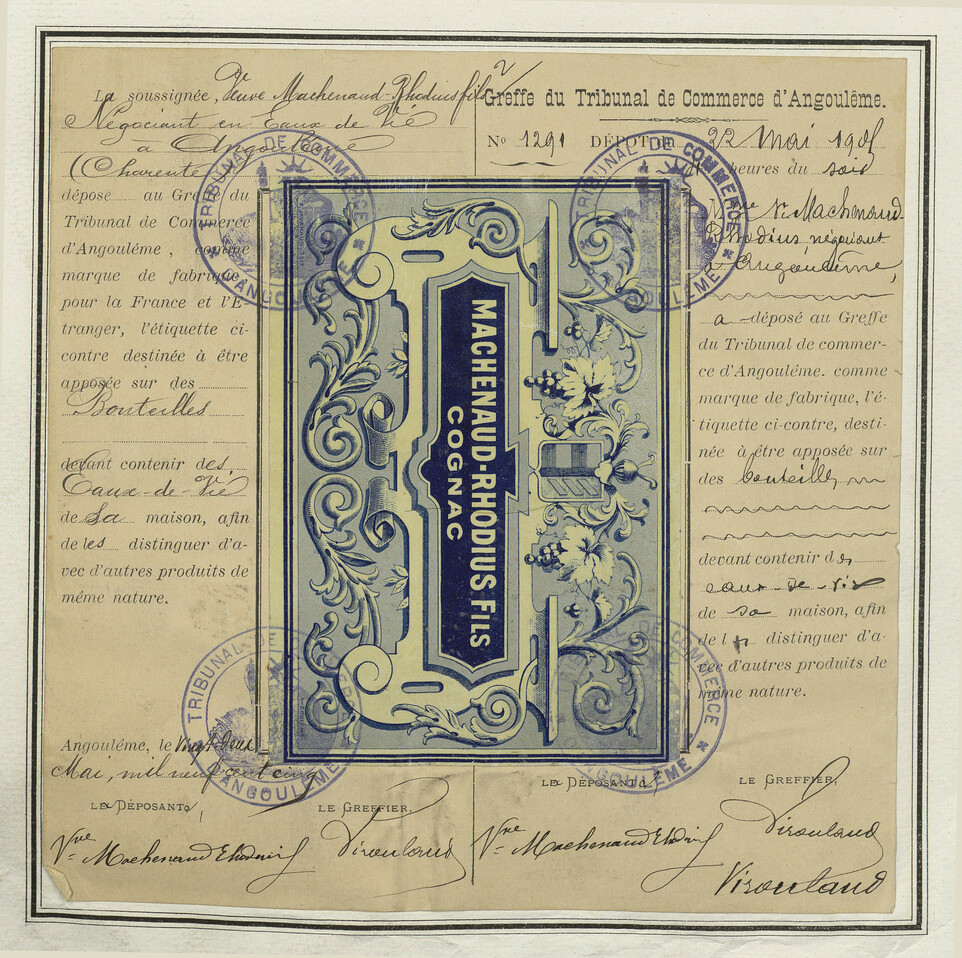 La soussignée, Veuve Machenaud-Rhodius fils
Négociant en Eaux de Vie
à Angoulême
(Charente)
dépose au Greffe du
Tribunal de Commerce
d'Angoulême, comme
marque de fabrique,
pour la France et l'E-
tranger, l'étiquette ci-
contre destinée à être
apposée sur des
Bouteilles
devant contenir des
Eaux-de-Vie
de sa maison, afin
de les distinguer d'a-
vec d'autres produits de
même nature.
Angoulême, le Vingt-Deux
Mai, mil neuf cent cinq
LA DÉPOSANTE,
LE GREFFIER,
Vve Machenaud Rhodius f
Virouland
2
Greffe du Tribunal de Commerce d'Angoulême.
No 1291 DÉPOT du 22 Mai 1905
heures du soir
Mme Ve Machenaud-
Rhodius négociant
à Angoulême,
a déposé au Greffe
du Tribunal de commer-
ce d'Angoulême. comme
marque de fabrique, l'é-
tiquette ci-contre, desti-
née à être apposée sur
des bouteilles
devant contenir des
eaux-de-vie
de sa maison, afin
de les distinguer d'a-
vec d'autres produits de
même nature.
LA DÉPOSANTE,
LE GREFFIER,
Vve Machenaud Rhodius f
Virouland
Virouland
MACHENAUD-RHODIUS FILS
COGNAC
TRIBUNAL DE COMMERCE
* D'ANGOULÊME *
TRIBUNAL DE COMMERCE
* D'ANGOULÊME *
TRIBUNAL DE
* D'ANGOULÊME
DE COMMERCE
ANGOULÊME *